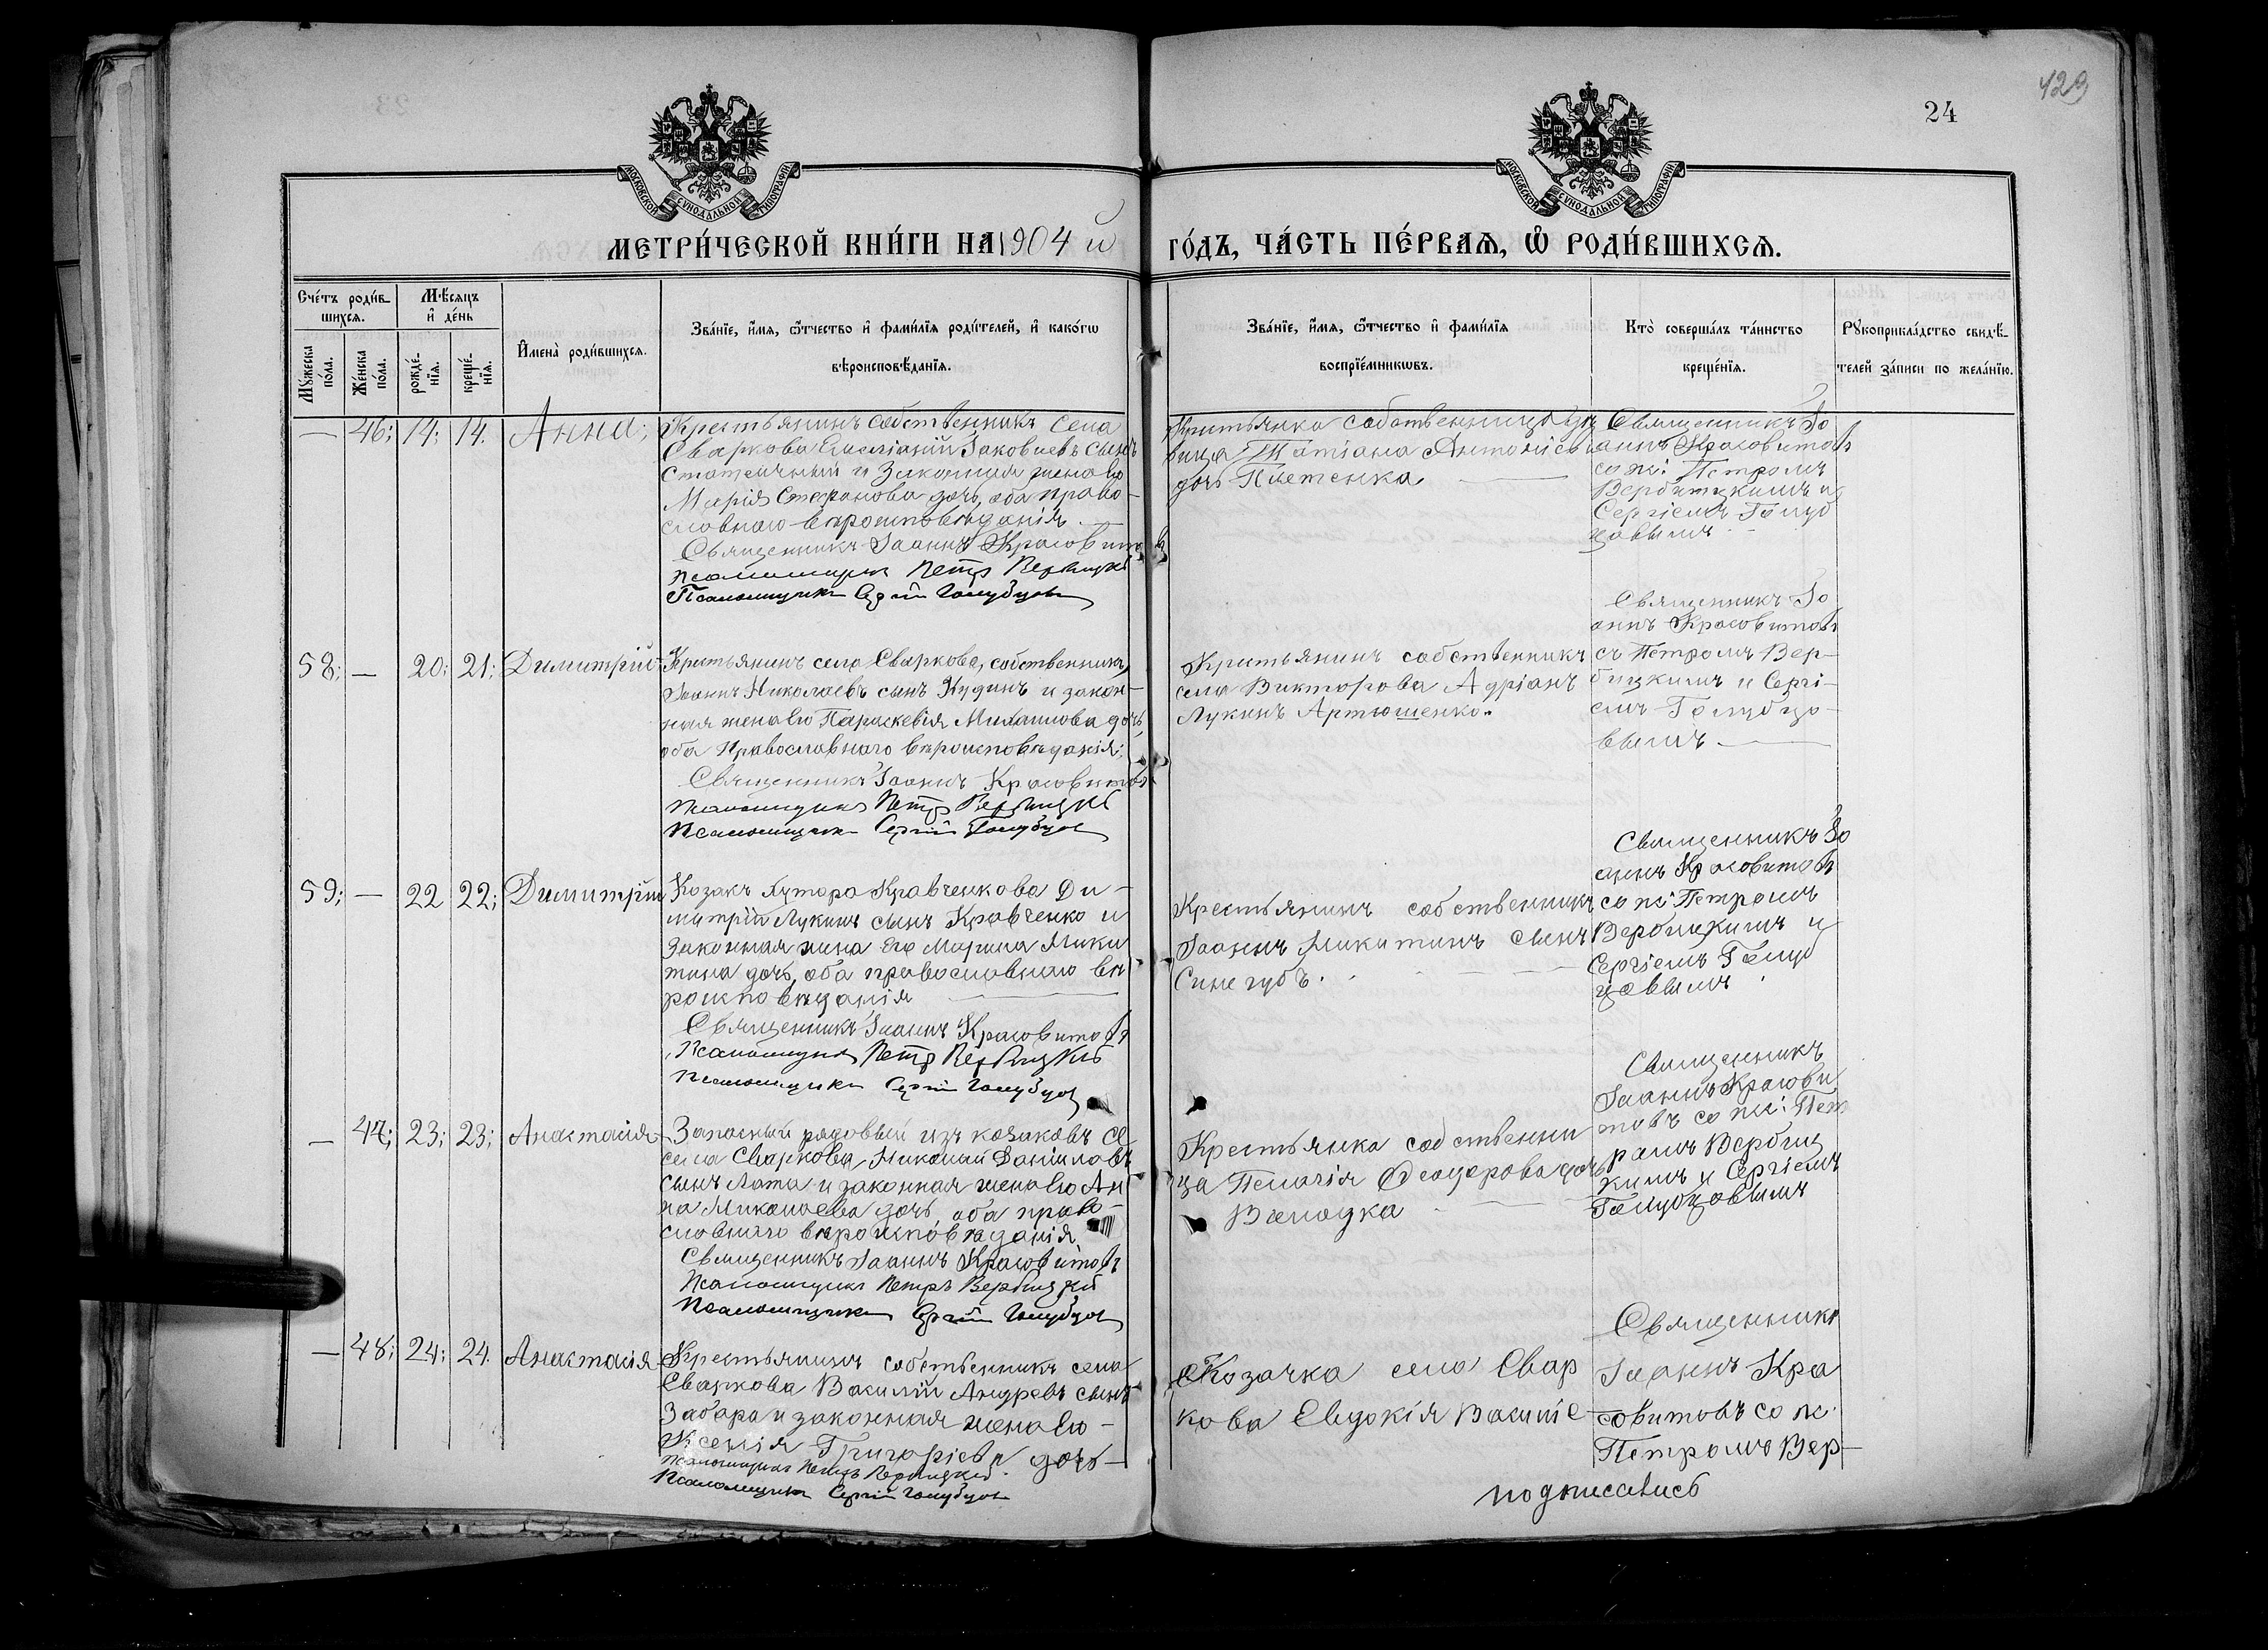 429
24
МОСКОВСКОЙ СУНОДАЛЬНОЙ ТИПОГРАФІИ
МОСКОВСКОЙ СУНОДАЛЬНОЙ ТИПОГРАФІИ
МЕТРИ́ЧЕСКОЙ КНИ́ГИ НА 1904 й
ГО́ДЪ, ЧА́СТЬ ПЕ́РВАѦ, Ѡ҆ РОДИ́ВШИХСѦ.
Сче́тъ роди́в-
шихсѧ.
Мꙋ́жеска
по́ла.
Же́нска
по́ла.
Мѣ́сѧцъ
и҆ де́нь
рожде́-
нїѧ.
креще́-
нїѧ.
И҆мена̀ роди́вшихсѧ.
Зва́нїе, и҆́мѧ, ѻ҆́тчество и҆ фами́лїѧ роди́телей, и҆ како́гѡ
вѣроисповѣ́данїѧ.
Зва́нїе, и҆́мѧ, ѻ҆́тчество и҆ фами́лїѧ
воспрїе́мникѡвъ.
Кто̀ соверша́лъ та́инство
креще́нїѧ.
Рꙋкоприкла́дство свидѣ́-
телей за́писи по жела́нїю.
— 46; 14; 14. Анна;
Крестьянинъ собственникъ села
Сваркова Емеліанъ Іаковлевъ сынъ
и законная жена его
Марія Стефанова дочь, оба право-
славнаго вѣроисповѣданія. —
Священникъ Іоаннъ Красовитовъ
Псаломщикъ Петръ Вербицкій
Псаломщикъ Сергій Голубцовъ
Крестьянка собственница
Татіана Антоніева
дочь
Священникъ Іо
аннъ Красовитовъ
со пс: Петромъ
Вербицкимъ и
Сергіемъ Голуб
цовымъ
58; — 20; 21; Димитрій
Крестьянинъ села Сваркова, собственникъ,
Іоаннъ Николаевъ сынъ Кудинъ и закон-
ная жена его Параскевія Михаилова дочь,
оба Православнаго вѣроисповѣданія;
Священникъ Іоаннъ Красовитовъ
Псаломщикъ Петръ Вербицкій
Псаломщикъ Сергій Голубцовъ
Крестьянинъ собственникъ
села Викторова Адріанъ
Лукинъ Артюшенко.
Священникъ Іо
аннъ Красовитовъ
съ Петромъ Вер-
бицкимъ и Сергі-
емъ Голубцо-
вымъ —
59; — 22 22; Димитрій
Козакъ хутора Кравченкова Ди-
митрій Лукинъ сынъ Кравченко и
законная жена его Марина Мики
тина дочь, оба православнаго вѣ
роисповѣданія —
Священникъ Іоаннъ Красовитовъ
Псаломщикъ Петръ Вербицкій
Псаломщикъ Сергій Голубцовъ
Крестьянинъ собственникъ
Іоаннъ Микитинъ сынъ
Синегубъ.
Священникъ Іо
аннъ Красовитовъ
со пс: Петромъ
Вербицкимъ и
Сергіемъ Голуб
цовымъ
— 47; 23; 23; Анастасія
Запасный рядовый изъ козаковъ се
села Сваркова, Николай Даніиловъ
сынъ Лата и законная жена его Ан
на Миколаева дочь, оба право-
славнаго вѣроисповѣданія
Священникъ Іоаннъ Красовитовъ
Псаломщикъ Петръ Вербицкій
Псаломщикъ Сергій Голубцовъ
Крестьянка собственни
ца Пелагія Ѳеодорова дочь
Священникъ
Іоаннъ Красови
товъ со пс: Пет
ромъ Вербиц
кимъ и Сергіемъ
Голубцовымъ
— 48; 24; 24. Анастасія
Крестьянинъ собственникъ села
Сваркова Василій Андреевъ сынъ
Забара и законная жена его —
Ксенія Григоріева дочь —
Псаломщикъ Петръ Вербицкій
Псаломщикъ Сергій Голубцовъ
Козачка села Свар
кова Евдокія Василіе-
Священникъ
Іоаннъ Кра
совитовъ со пс.
Петромъ Вер-
подписались